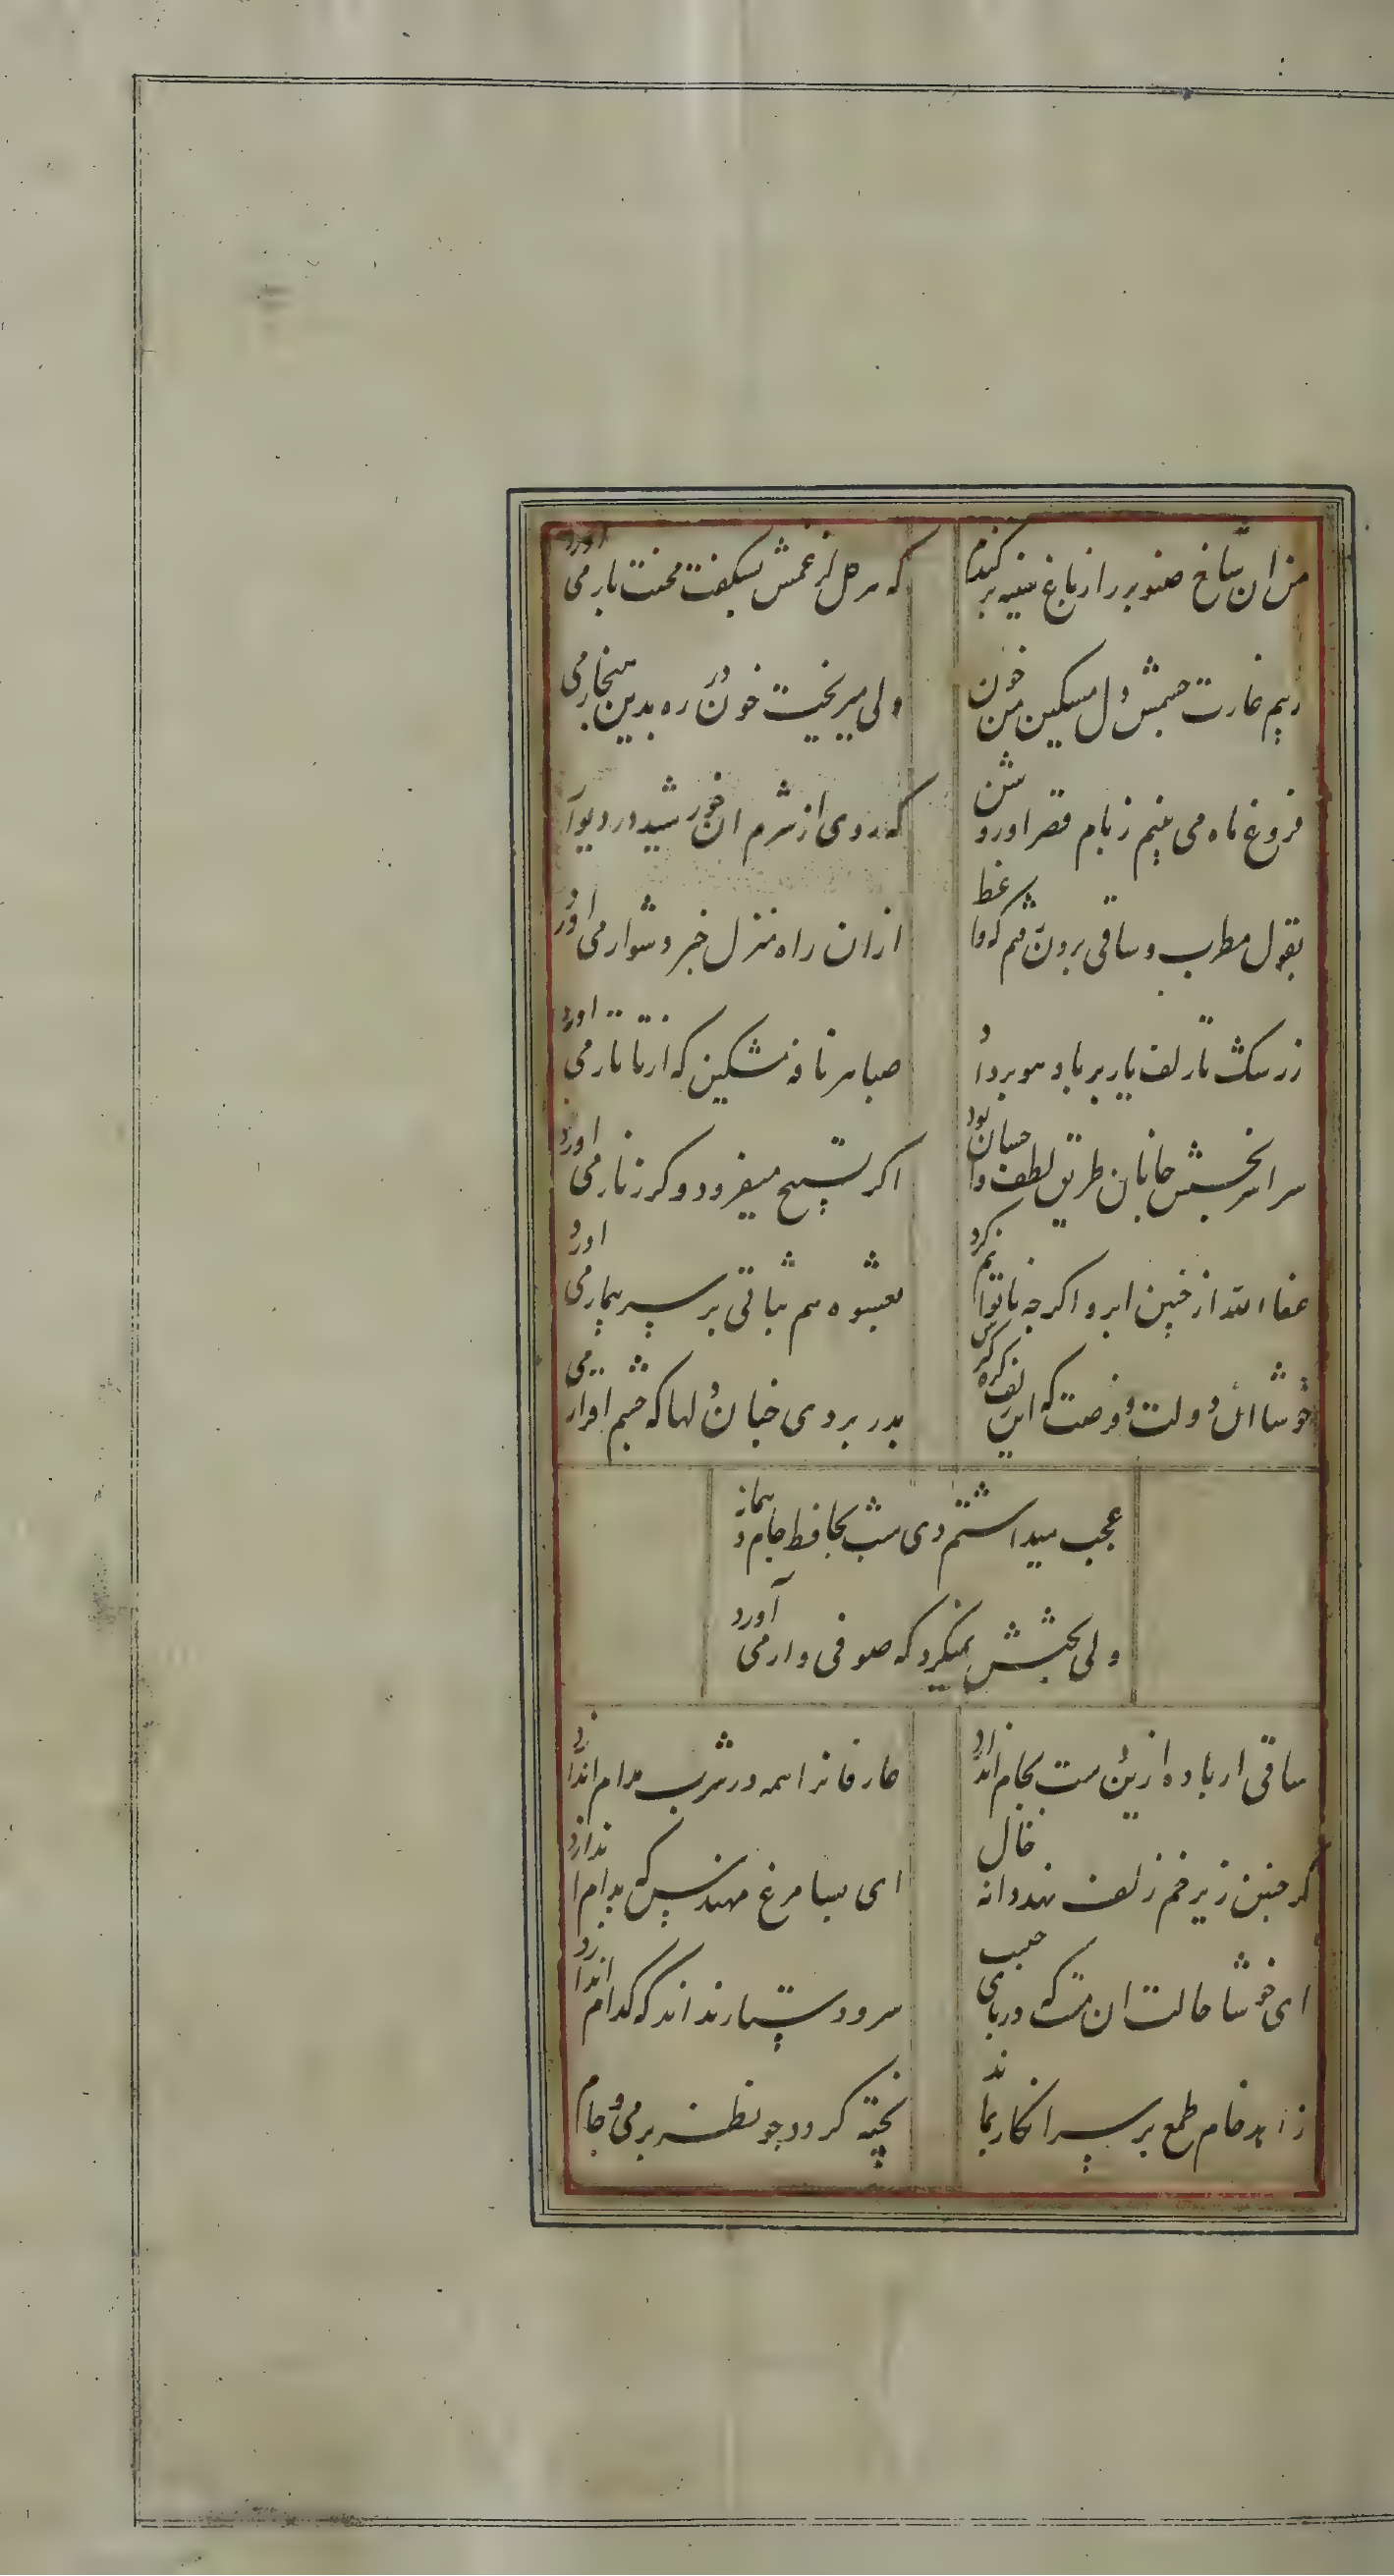 من ان شاخ صنوبر را ز باغ سینه بر کندم
که هر گل کز غمش بشکفت محنت بار می اورد
ز بیم غارت چشمش دل مسکین من خون
ولی میریخت خون و در ره بدین هنجار می
فروغ ماه می بینم ز بام قصر او روشن
که روی از شرم ان خورشید در دیوار
بقول مطرب و ساقی برون رفتم که و
از ان راه منزل خبر دشوار می اورد
ز رشک تار زلف یار بر باد هوا برداد
صبا هر نافه مشکین که از تاتار می اورد
سراسر بخشش جانان طریق لطف و احسان بود
اکر تسبیح میفرمود و کر زنار می اورد
عفا الله از چین ابرو اکر چه ناتوانم کرد
بعشوه هم بر سر بیمار می اورد
خوشا ان دولت و فرصت که این زلف کره
بدر بر روی که چشم اقرار می
عجب میداشتم دی شب بحافظ جام و پیمانه
ولی بخشش نمیکرد که صوفی وار می آورد
ساقی ار باده ازین دست بجام اندازد
عارفانرا همه در شرب مدام اندازد
کر چنین زیر خم زلف نهد دانه خال
ای بسا مرغ مهندس که بدام اندازد
ای خوشا حالت ان مست که در پای حبیب
سر و دستار نداند که کدام اندازد
زاهد خام طمع بر سر انکار بماند
پخته کردد چو نظر بر می و جام